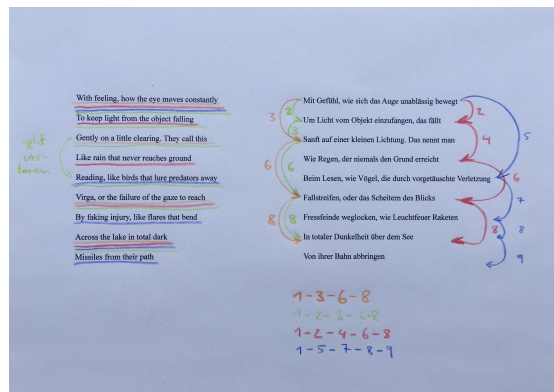 With feeling, how the eye moves constantly
To keep light from the object falling
Gently on a little clearing. They call this
Like rain that never reaches ground
Reading, like birds that lure predators away
Virga, or the failure of the gaze to reach
By faking injury, like flares that bend
Across the lake in total dark
Missiles from their path
ver-
loren
Mit Gefühl, wie sich das Auge unablässig bewegt
Um Licht vom Objekt einzufangen, das fällt
Sanft auf einer kleinen Lichtung. Das nennt man
Wie Regen, der niemals den Grund erreicht
Beim Lesen, wie Vögel, die durch vorgetäuschte Verletzung
Fallstreifen, oder das Scheitern des Blicks
Fressfeinde weglocken, wie Leuchtfeuer Raketen
In totaler Dunkelheit über dem See
Von ihrer Bahn abbringen
3
6
8
2
3
6
8
2
4
6
8
5
7
8
9
1-3-6-8
1-2-3-6-8
1-2-4-6-8
1-5-7-8-9